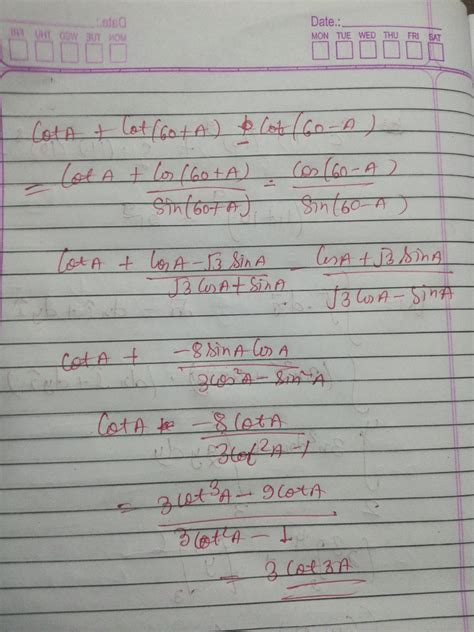 Date.:
MON TUE WED THU FRI SAT
Cot A + Cot(60+A) - Cot(60-A)
= Cot A + Cos(60+A)/Sin(60+A) - Cos(60-A)/Sin(60-A)
Cot A + CosA-√3 SinA/√3 CosA+SinA - CosA+√3 SinA/√3 CosA-SinA
Cot A + -8SinA CosA/3Cos²A-Sin²A
Cot A + -8CotA/3Cot²A-1
= 3Cot³A-9CotA/3Cot²A-1
= 3Cot3A